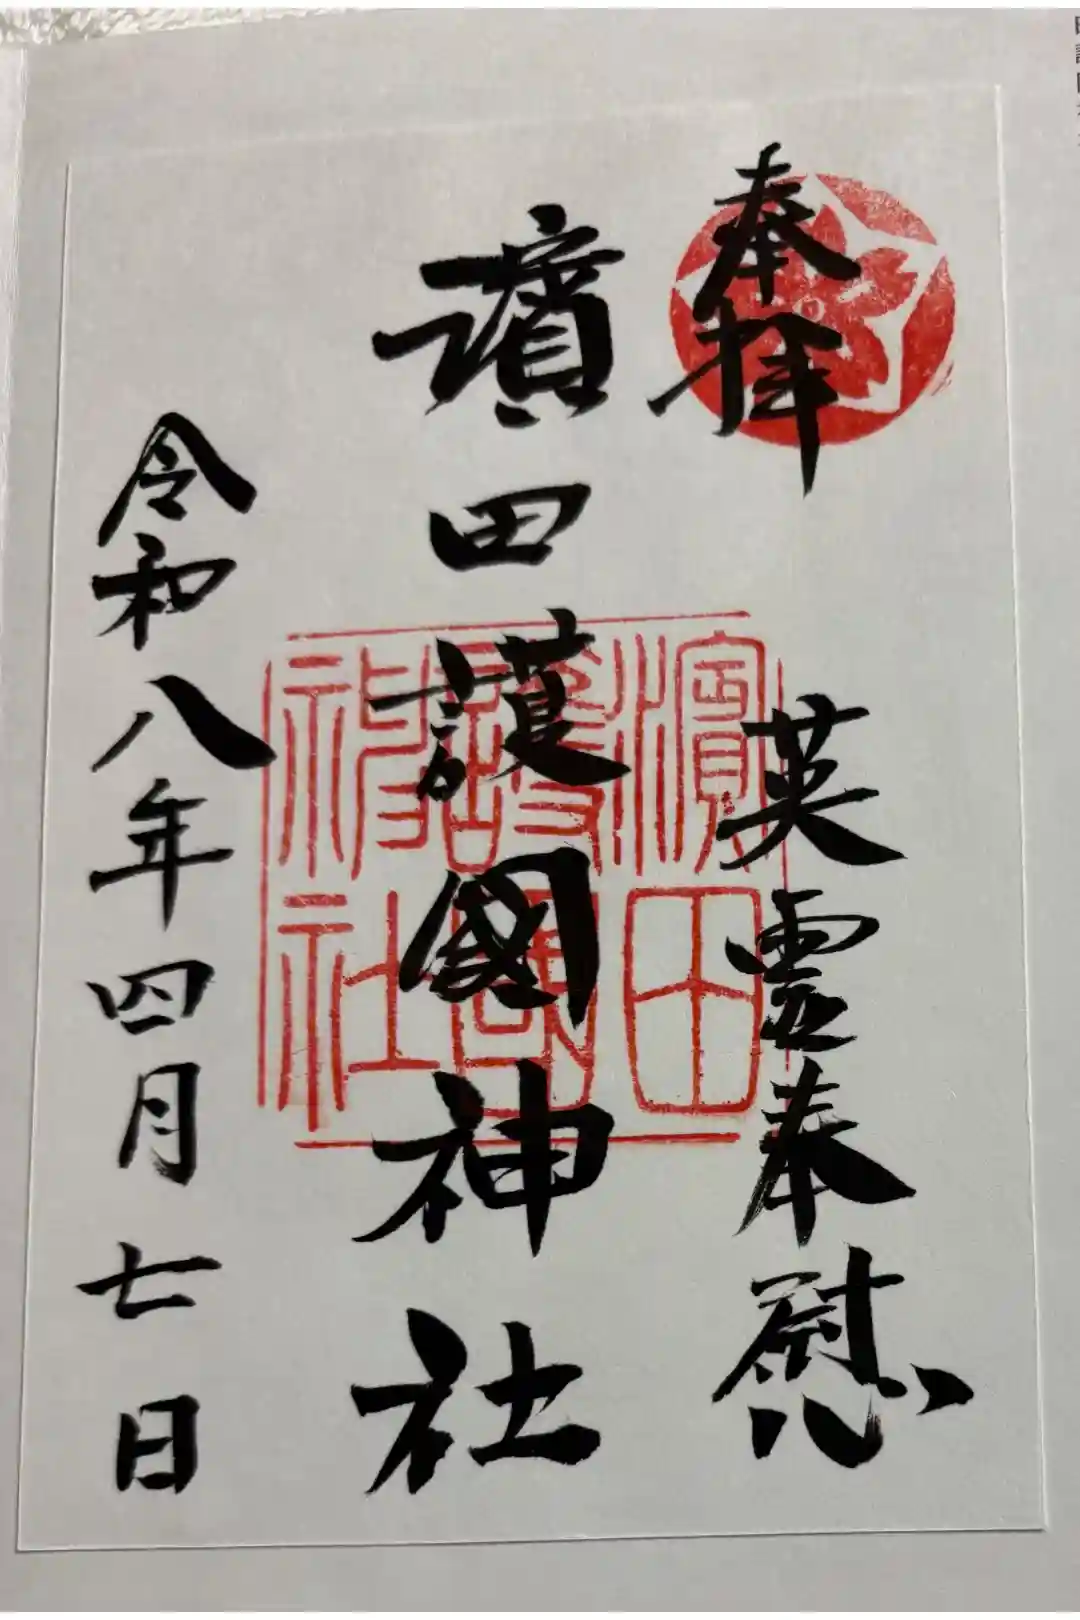 奉拝
英霊奉慰
濵田護國神社
濱田護國神社
令和八年四月七日